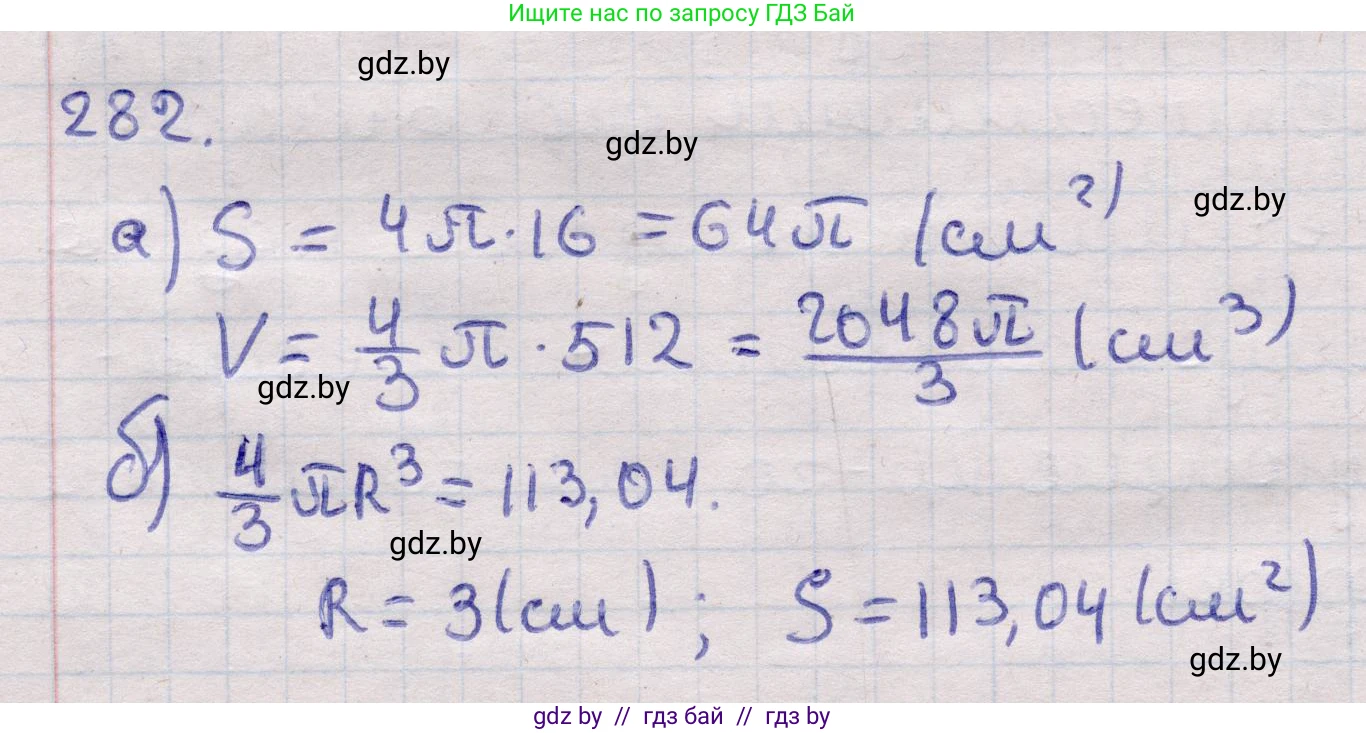 Ищите нас по запросу ГДЗ Бай
gdz.by
282.
gdz.by
gdz.by
а) S = 4π·16 = 64π (см²)
V = 4/3 π · 512 = 2048π/3 (см³)
gdz.by
б) 4/3 πR³ = 113,04.
gdz.by
R = 3(см); S = 113,04 (см²)
gdz.by
gdz by // гдз бай // гдз by